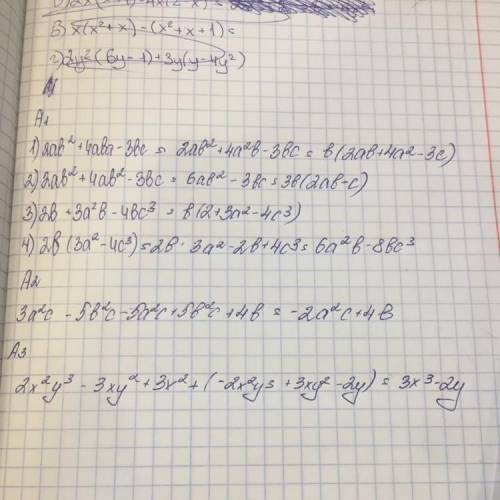 В) x(x²+x)-(x²+x+1)=
г) 2y²(6y-1)+3y(y-4y²)
A1
1) 2ab²+4aba-3bc = 2ab²+4a²b-3bc = b(2ab+4a²-3c)
2) 2ab²+4ab²-3bc = 6ab²-3bc = 3b(2ab-c)
3) 2b+3a²b-4bc³ = b(2+3a²-4c³)
4) 2b(3a²-4c³)=2b·3a²-2b+4c³=6a²b-8bc³
A2
3a²c-5b²c-5a²c+5b²c+4b=-2a²c+4b
A3
2x²y³-3xy²+3x²+(-2x²y³+3xy²-2y)=3x³-2y